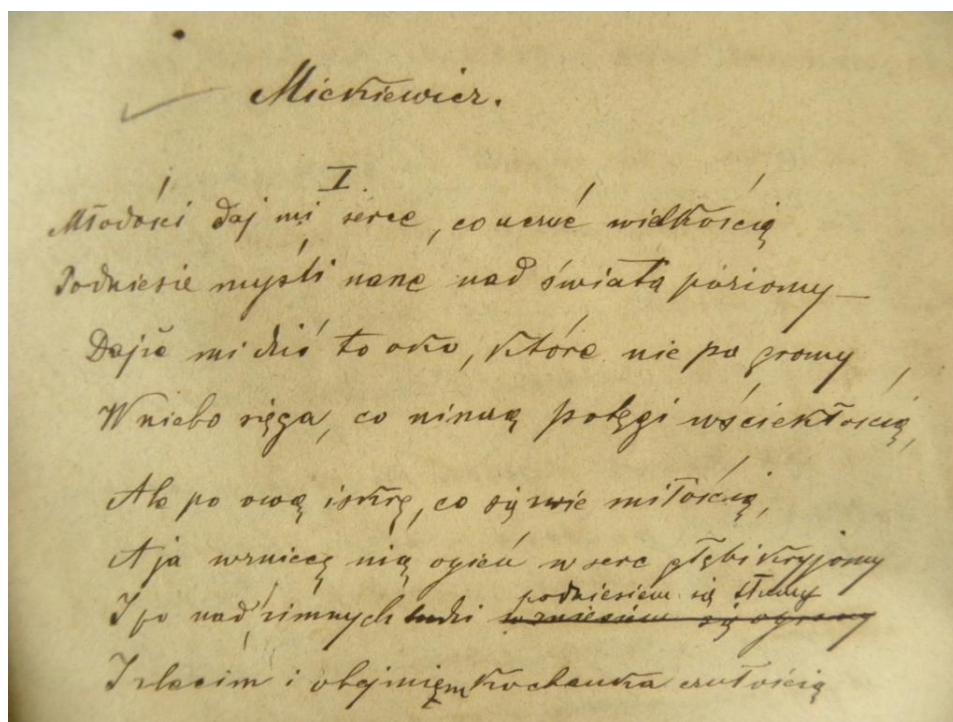 Mickiewicz.
I.
Młodości daj mi serce, co uczuć wielkością
Podniesie myśli nasze nad świata poziomy —
Dajże mi dziś to oko, które nie po gromy
W niebo sięga, co niszczą potęgi wściekłością,
Ale po ową iskrę, co się zwie miłością,
A ja wzniecę nią ogień w serc głębi kryjomy
podniesiem się stromy
I po nad zimnych ludzi wzniesiem się ogromy
I zlecim i obejmiem kochanka czułością